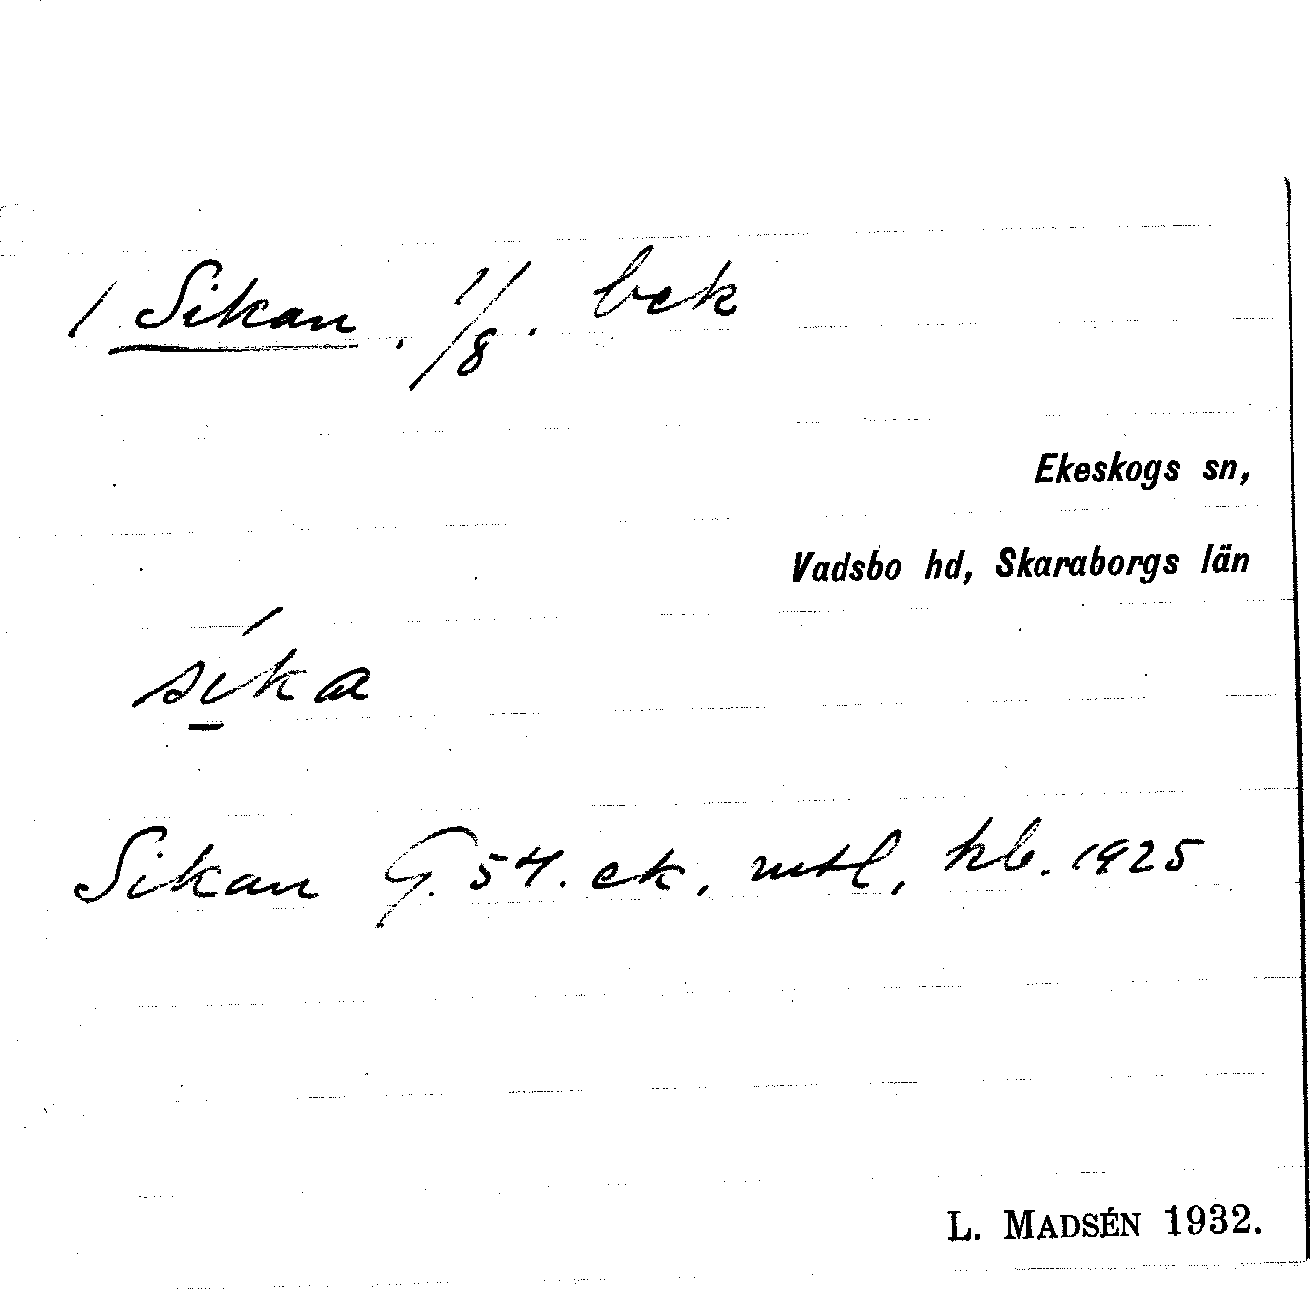 1 Sikan. 1/8. bek
Ekeskogs sn,
Vadsbo hd, Skaraborgs län
síka
Sikan G. 54. ek. mtl, kb. 1925
L. MADSÉN 1932.